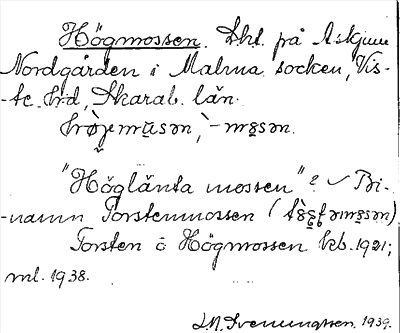 Högmossen. Lht. på Askjum
Nordgården i Malma socken, Vis-
-te hrd, Skarab. län.
"Höglänta mossen"? ✓ Bi-
-namn Torstenmossen
Torsten ö Högmossen leb. 1921;
ml. 1938.
Svenungsson. 1939.